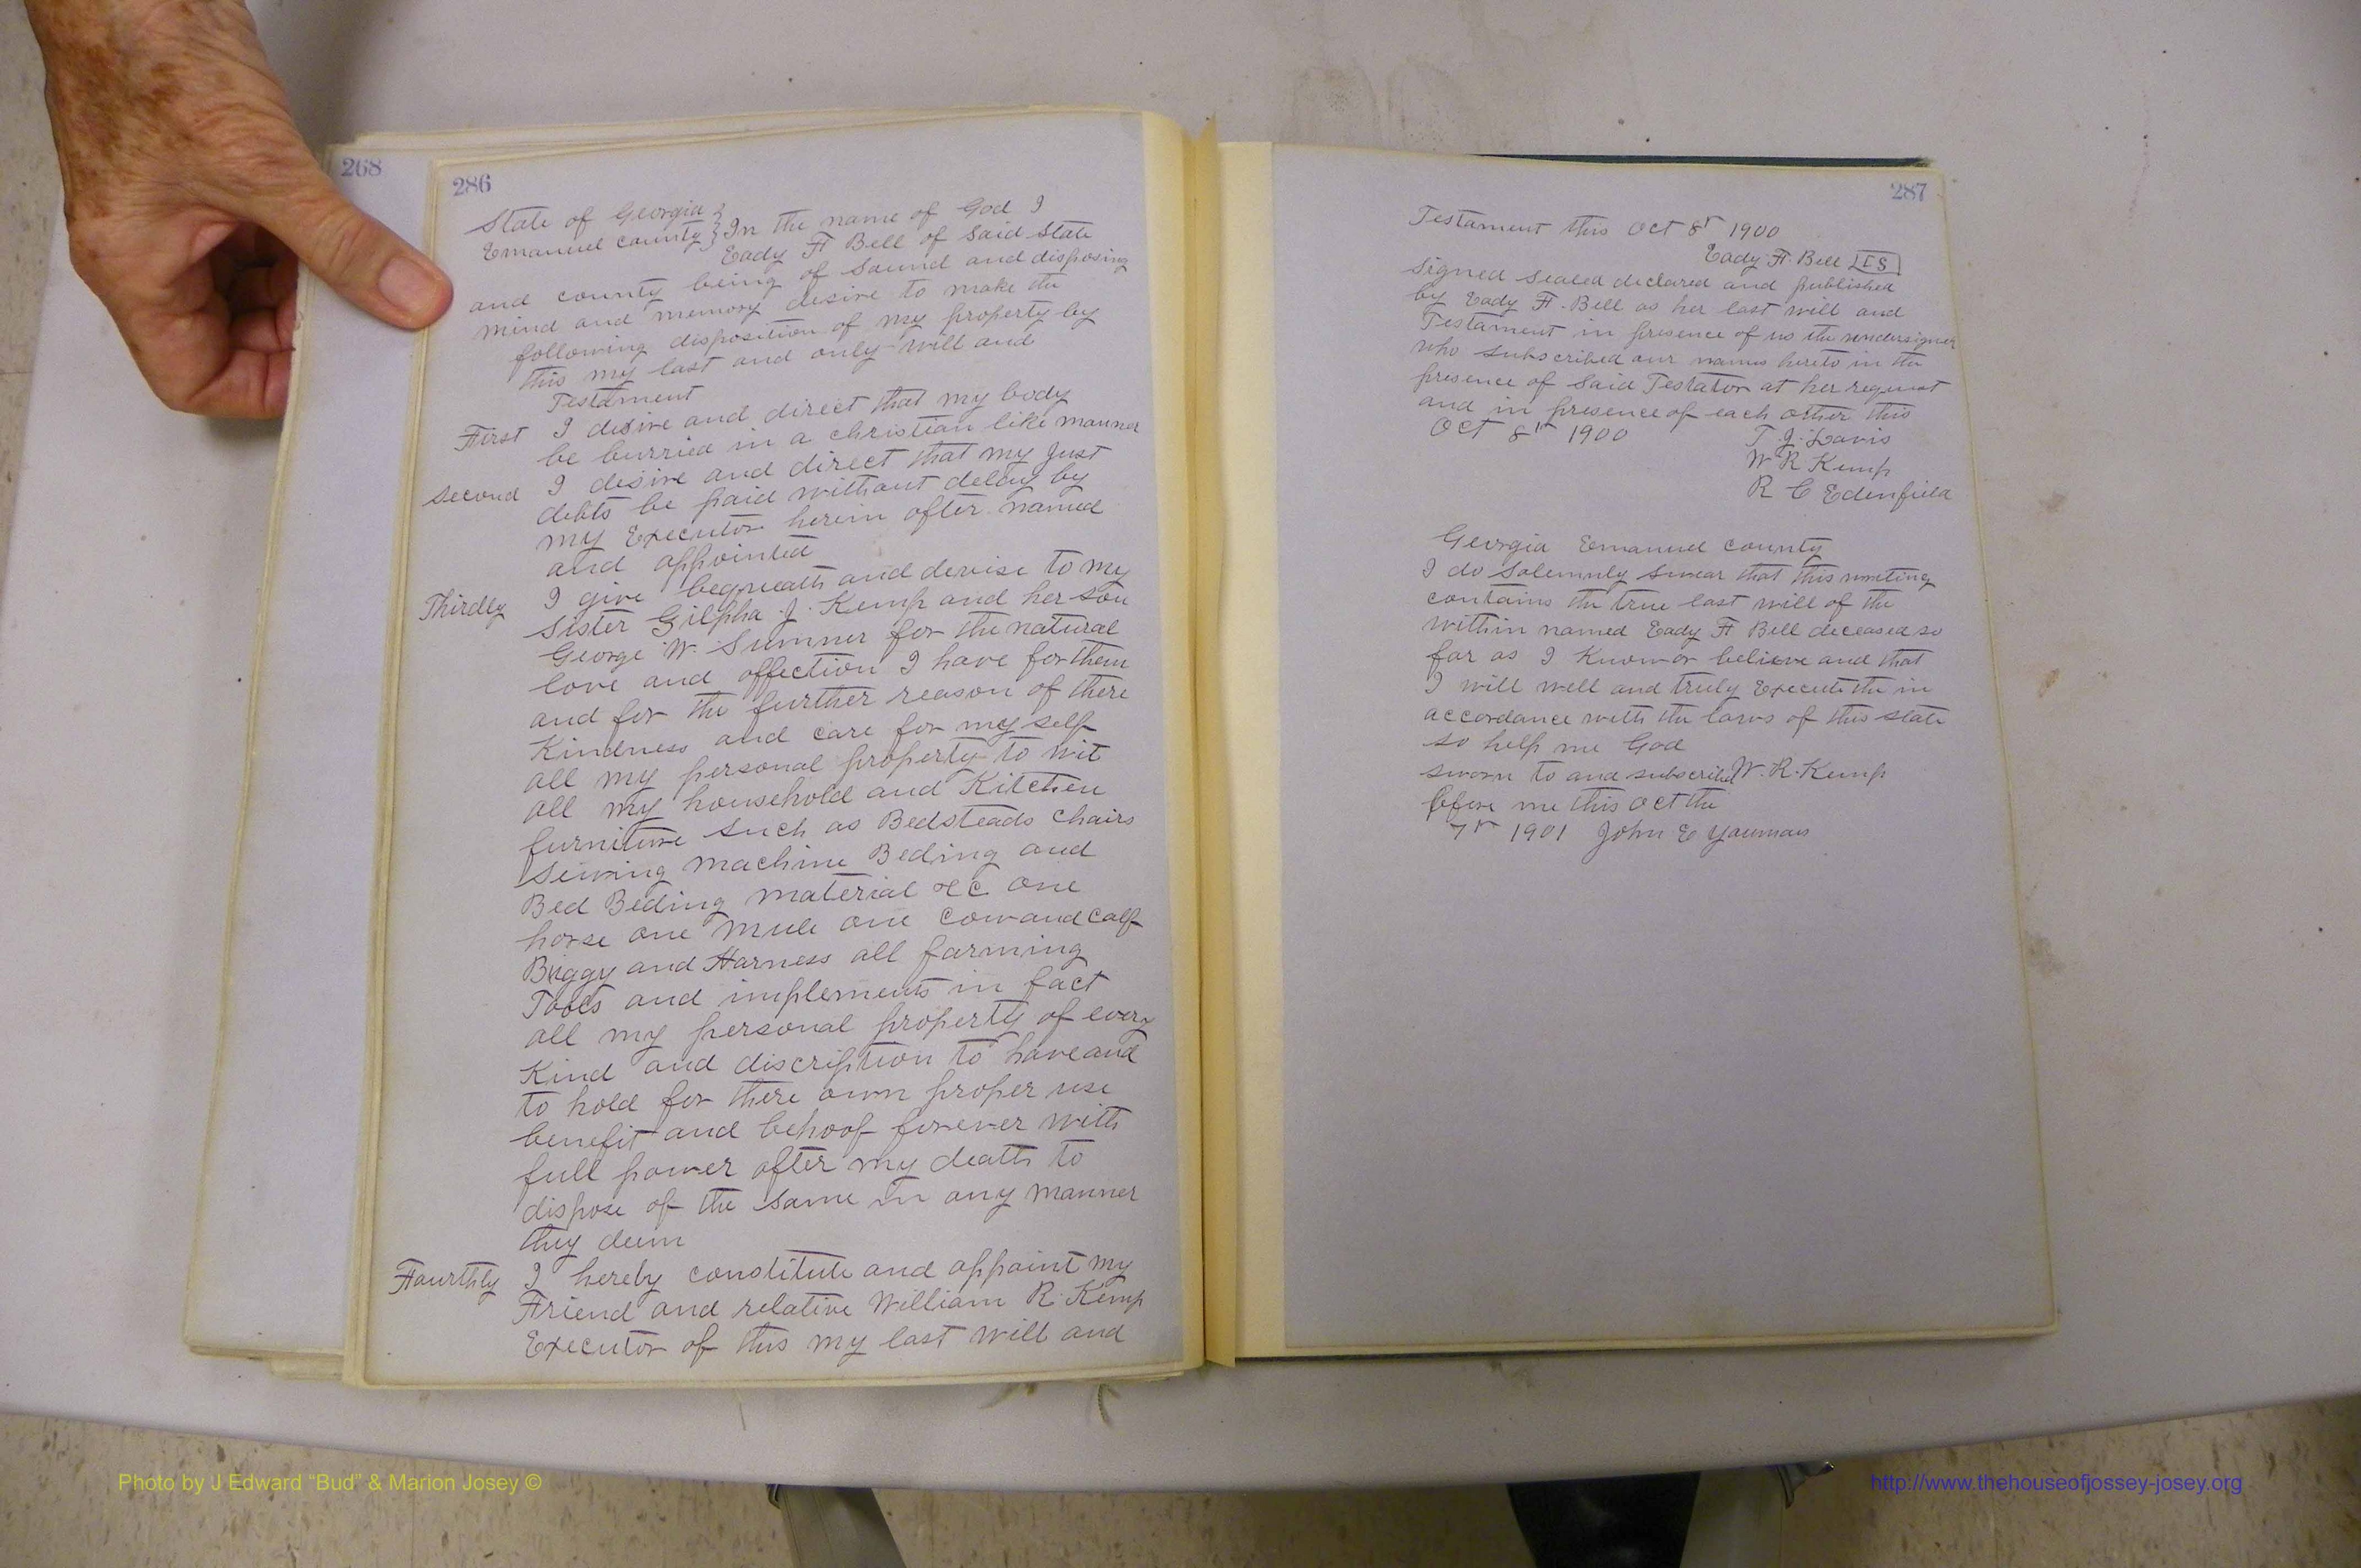 268
286
State of Georgia }
Emanuel county } In the name of God I
Eady F Bell of Said State
and county being of Sound and disposing
mind and memory desire to make the
following disposition of my property by
this my last and only will and
Testament
First I desire and direct that my body
be burried in a christian like manner
Second I desire and direct that my Just
debts be paid without delay by
my Executor herein after named
and appointed
Thirdly I give bequeath and devise to my
Sister J. Kemp and her son
George W. Sumner for the natural
love and affection I have for them
and for the further reason of there
Kindness and care for my self
all my personal property to wit
all my household and Kitchen
furniture such as Bedsteads chairs
Sewing machine Beding and
Bed Beding material &c one
horse one mule one cow and calf
Buggy and Harness all farming
Tools and implements in fact
all my personal property of every
Kind and discription to have and
to hold for there own proper use
benefit and behoof forever with
full power after my death to
dispose of the same in any manner
they deem
Fourthly I hereby constitute and appoint my
Friend and relative William R. Kemp
Executor of this my last will and
287
Testament this Oct 8th 1900
Eady F. Bell LS
Signed Sealed declared and published
by Eady F. Bell as her last will and
Testament in presence of us the undersigned
who subscribed our names hereto in the
presence of Said Testator at her request
and in presence of each other this
Oct 8th 1900 T. J. Davis
W R Kemp
R C Edenfield
Georgia Emanuel county
I do Solemnly Swear that this writing
contains the true last will of the
within named Eady F Bell deceased so
far as I Know or believe and that
I will well and truly Execute the in
accordance with the laws of this state
so help me God
sworn to and subscribed W. R. Kemp
before me this Oct the
7th 1901 John E Youmans
Photo by J Edward “Bud” & Marion Josey ©
http://www.thehouseofjossey-josey.org